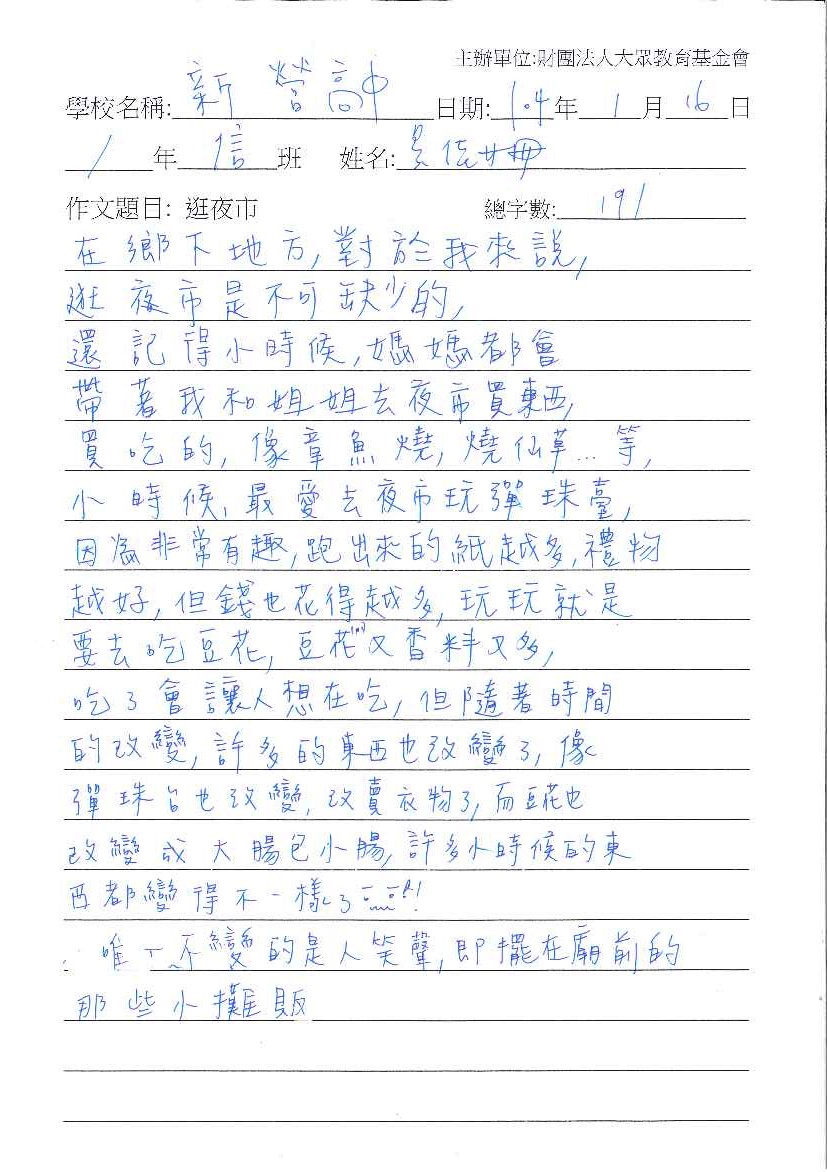 主辦單位:財團法人大眾教育基金會
學校名稱: 新營高中 日期: 104 年 1 月 16 日
1 年 信 班 姓名:
作文題目: 逛夜市 總字數: 191
在鄉下地方,對於我來說,
逛夜市是不可缺少的,
還記得小時候,媽媽都會
帶著我和姐姐去夜市買東西,
買吃的,像章魚燒,燒仙草...等,
小時候,最愛去夜市玩彈珠臺,
因為非常有趣,跑出來的紙越多,禮物
越好,但錢也花得越多,玩玩就是
要去吃豆花,豆花又香料又多,
吃了會讓人想在吃,但隨著時間
的改變,許多的東西也改變了,像
彈珠台也改變,改賣衣物了,而豆花也
改變成大腸包小腸,許多小時候的東
西都變得不一樣了
唯一不變的是人笑聲,即擺在廟前的
那些小攤販